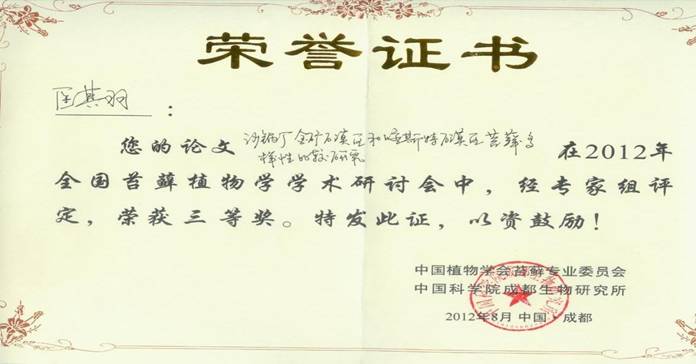 荣誉证书
匡其羽:
您的论文沙锅丁金矿石漠区和喀斯特石漠区苔藓多
样性比较研究
在2012年
全国苔藓植物学学术研讨会中,经专家组评
定,荣获三等奖。特发此证,以资鼓励!
中国植物学会苔藓专业委员会
中国科学院成都生物研究所
2012年8月 中国·成都